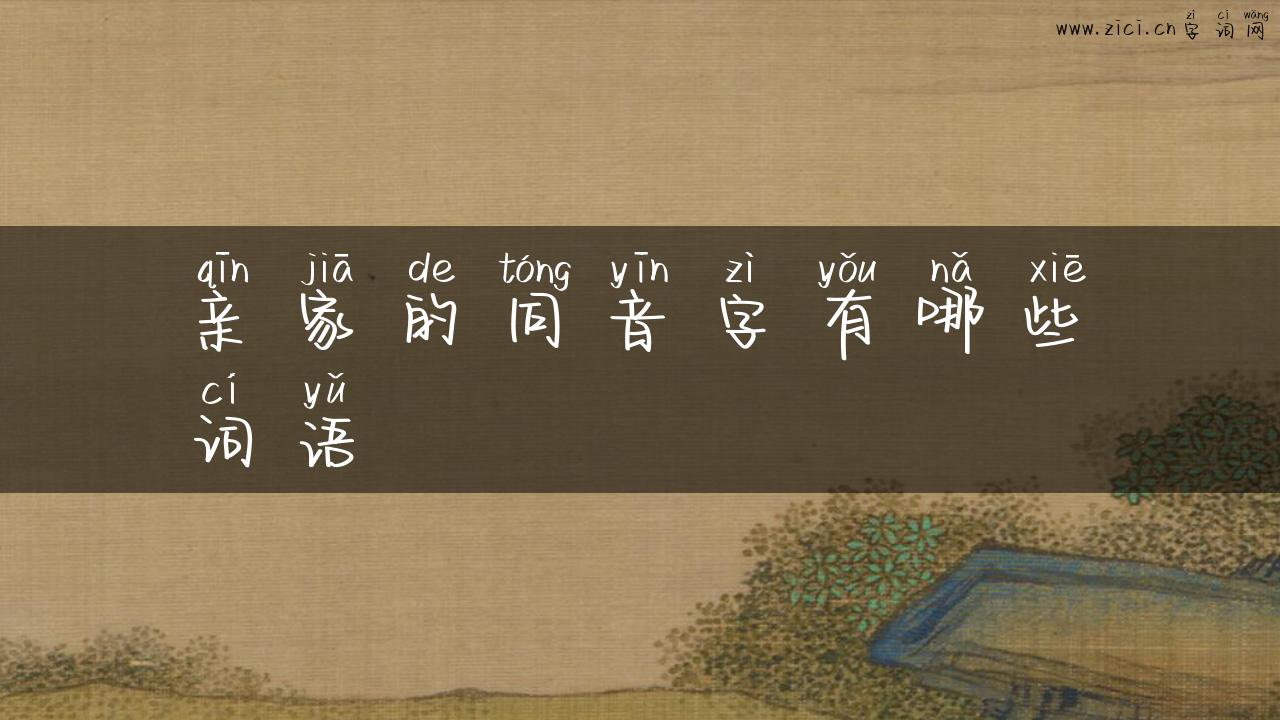 zì cí wǎng
www.zici.cn 字词网
qīn jiā de tóng yīn zì yǒu nǎ xiē
亲家的同音字有哪些
cí yǔ
词语